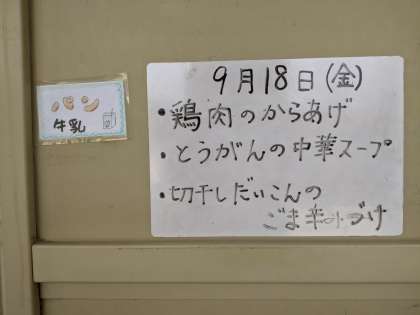 パン
牛乳
9月18日(金)
・鶏肉のからあげ
・とうがんの中華スープ
・切干しだいこんの
ごま辛みづけ